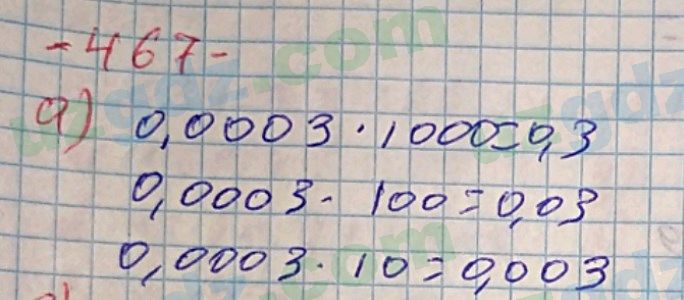 -467-
а) 0,0003 · 1000 = 0,3
0,0003 · 100 = 0,03
0,0003 · 10 = 0,003